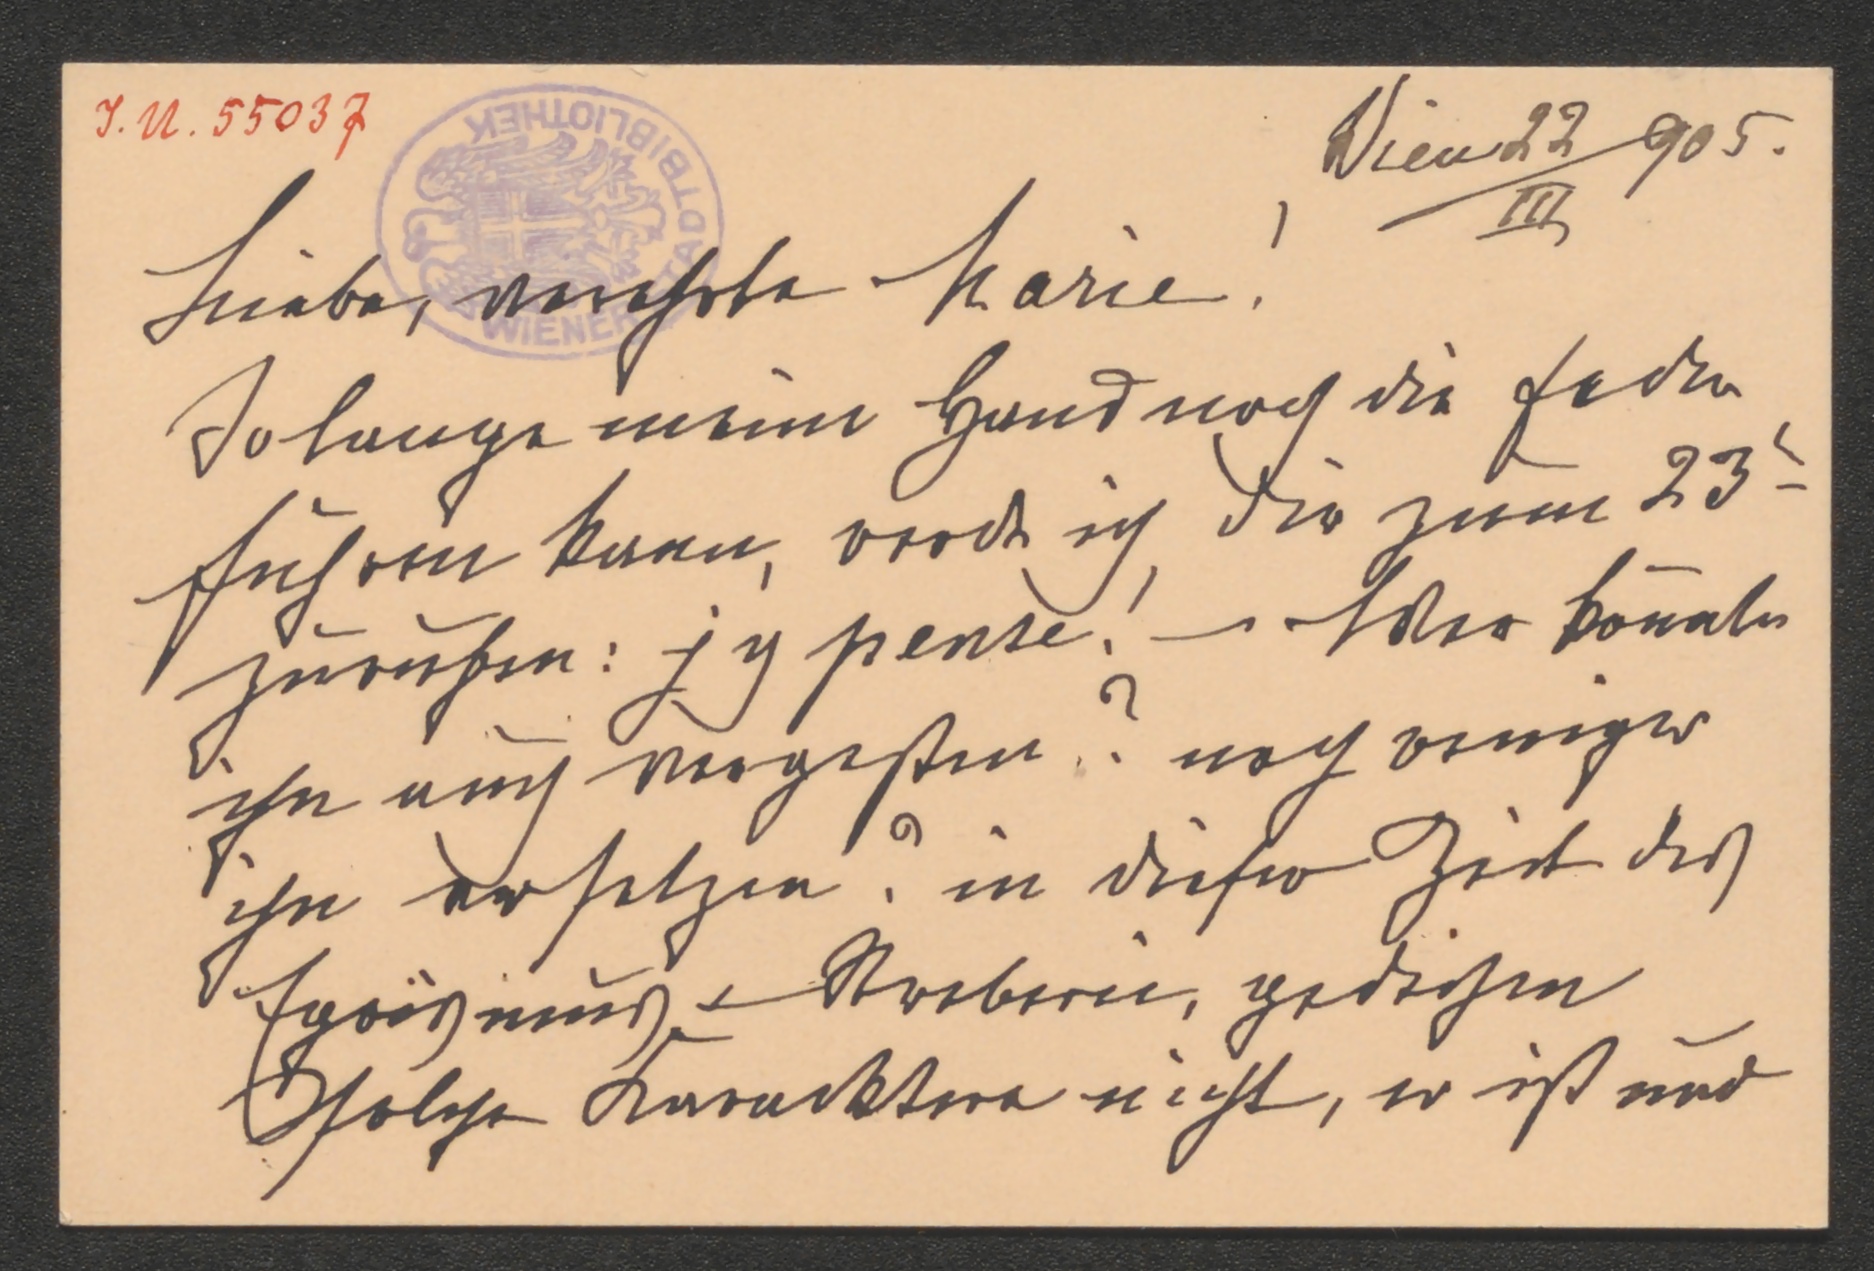 I. N. 55037
WIENER STADTBIBLIOTHEK
Wien 22/III 905.
Liebe, verehrte Marie!
So lange meine Hand noch die Feder
führen kann, werde ich Dir zum 23t
zurufen: j'y pense! – Wer könnte
ihn auch vergeßen? noch weniger
ihn ersetzen? in dieser Zeit des
Egoismus & Streberei, gedeihen
solche Karacktere nicht, er ist und